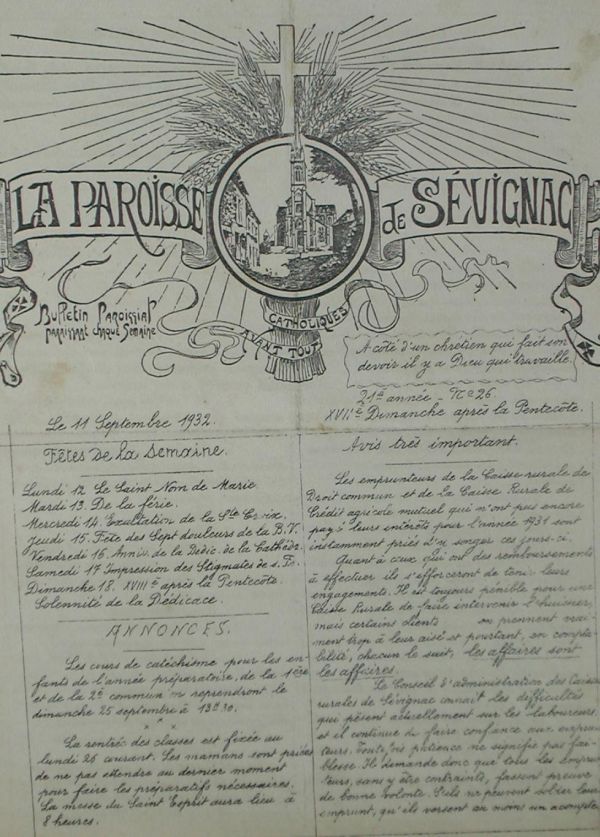 LA PAROISSE de SÉVIGNAC
Bulletin Paroissial
paraissant chaque Semaine
CATHOLIQUES
AVANT TOUT
A côté d'un chrétien qui fait son
devoir il y a Dieu qui travaille.
21e année - No 26.
Le 11 Septembre 1932.
XVIIe Dimanche après la Pentecôte.
Fêtes de la Semaine.
Lundi 12 Le Saint Nom de Marie
Mardi 13. De la férie.
Mercredi 14. Exaltation de la Ste Croix.
Jeudi 15. Fête des Sept douleurs de la B.V.
Vendredi 16. Anniv. de la Dédic. de la Cathéd.
Samedi 17 Impression des Stigmates de s. Fr.
Dimanche 18. XVIIIe après la Pentecôte.
Solennité de la Dédicace.
ANNONCES.
Les cours de catéchisme pour les en-
fants de l'année préparatoire, de la 1ère
et de la 2e commun on reprendront le
dimanche 25 septembre à 13h30.
x x x
La rentrée des classes est fixée au
lundi 26 courant. Les mamans sont priées
de ne pas attendre au dernier moment
pour faire les préparatifs nécessaires.
La messe du Saint Esprit aura lieu à
8 heures.
Avis très important.
Les emprunteurs de la Caisse rurale de
Droit commun et de la Caisse Rurale de
Crédit agricole mutuel qui n'ont pas encore
payé leurs intérêts pour l'année 1931 sont
instamment priés d'y songer ces jours-ci.
Quant à ceux qui ont des remboursements
à effectuer ils s'efforceront de tenir leurs
engagements. Il est toujours pénible pour une
Caisse Rurale de faire intervenir l'huissier,
mais certains clients en prennent vrai-
ment trop à leur aise et pourtant, en compta-
bilité, chacun le sait, les affaires sont
les affaires.
Le Conseil d'administration des Caisses
rurales de Sévignac connaît les difficultés
qui pèsent actuellement sur les laboureurs
et il continue de faire confiance aux emprun-
teurs. Toutefois patience ne signifie pas fai-
blesse. Il demande donc que tous les emprun-
teurs, sans y être contraints, fassent preuve
de bonne volonté. S'ils ne peuvent solder leur
emprunt, qu'ils versent au moins un acompte